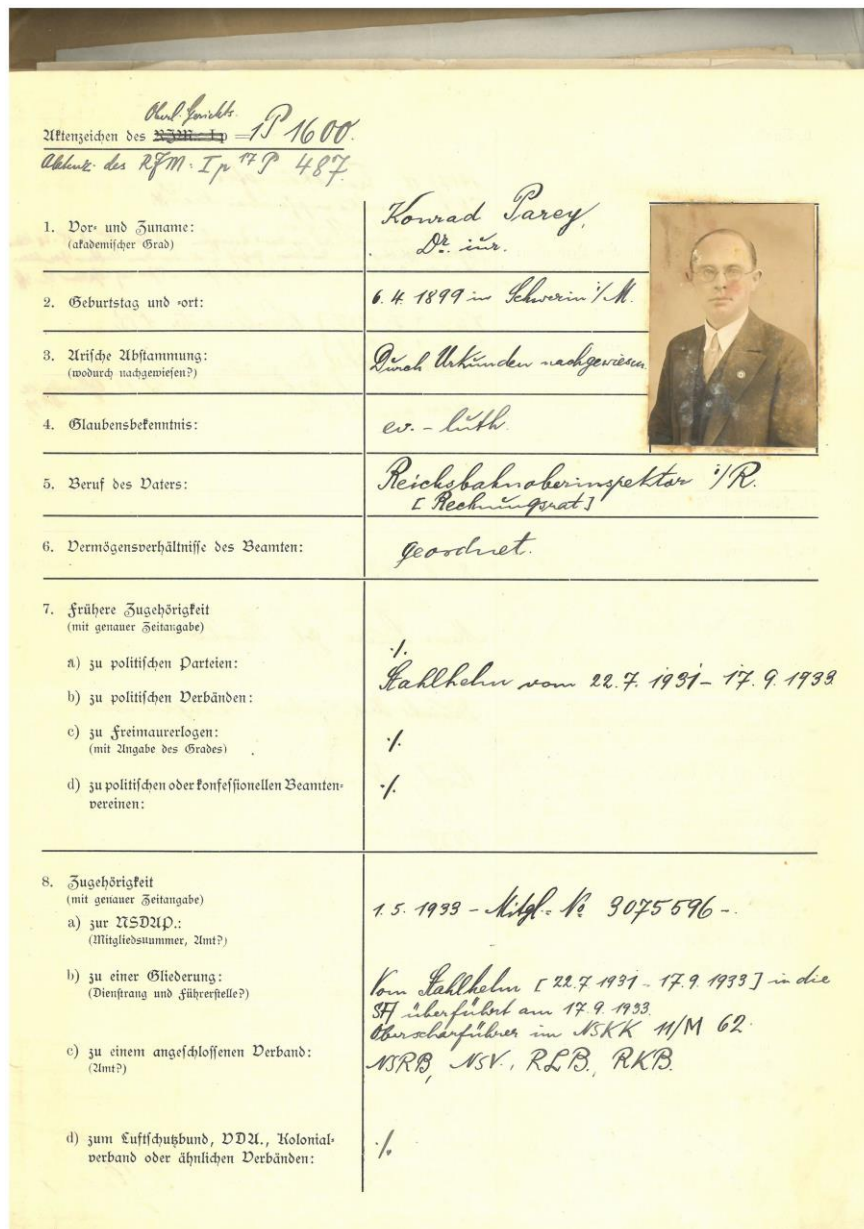 Oberl. Gerichts.
Aktenzeichen des RJM. Ip = 1P 1600.
Aktenz. des RJM: Ip 17 P 487.
1. Vor- und Zuname:
(akademischer Grad)
Konrad Parey,
Dr. iur.
2. Geburtstag und -ort:
6. 4. 1899 in Schwerin i/M.
3. Arische Abstammung:
(wodurch nachgewiesen?)
Durch Urkunden nachgewiesen
4. Glaubensbekenntnis:
ev. - luth.
5. Beruf des Vaters:
Reichsbahnoberinspektor i/R.
[Rechnungsrat]
6. Vermögensverhältnisse des Beamten:
geordnet.
7. Frühere Zugehörigkeit
(mit genauer Zeitangabe)
a) zu politischen Parteien:
./.
b) zu politischen Verbänden:
Stahlhelm vom 22. 7. 1931 - 17. 9. 1933
c) zu Freimaurerlogen:
(mit Angabe des Grades)
./.
d) zu politischen oder konfessionellen Beamten-
vereinen:
./.
8. Zugehörigkeit
(mit genauer Zeitangabe)
a) zur NSDAP.:
(Mitgliedsnummer, Amt?)
1. 5. 1933 - Mitgl. No 3075596 -.
b) zu einer Gliederung:
(Dienstrang und Führerstelle?)
Vom Stahlhelm [22.7 1931 - 17. 9. 1933] in die
SA überführt am 17. 9. 1933.
Oberscharführer im NSKK 11/M 62
c) zu einem angeschlossenen Verband:
(Amt?)
NSRB, NSV., RLB., RKB.
d) zum Luftschutzbund, VDA., Kolonial-
verband oder ähnlichen Verbänden:
./.